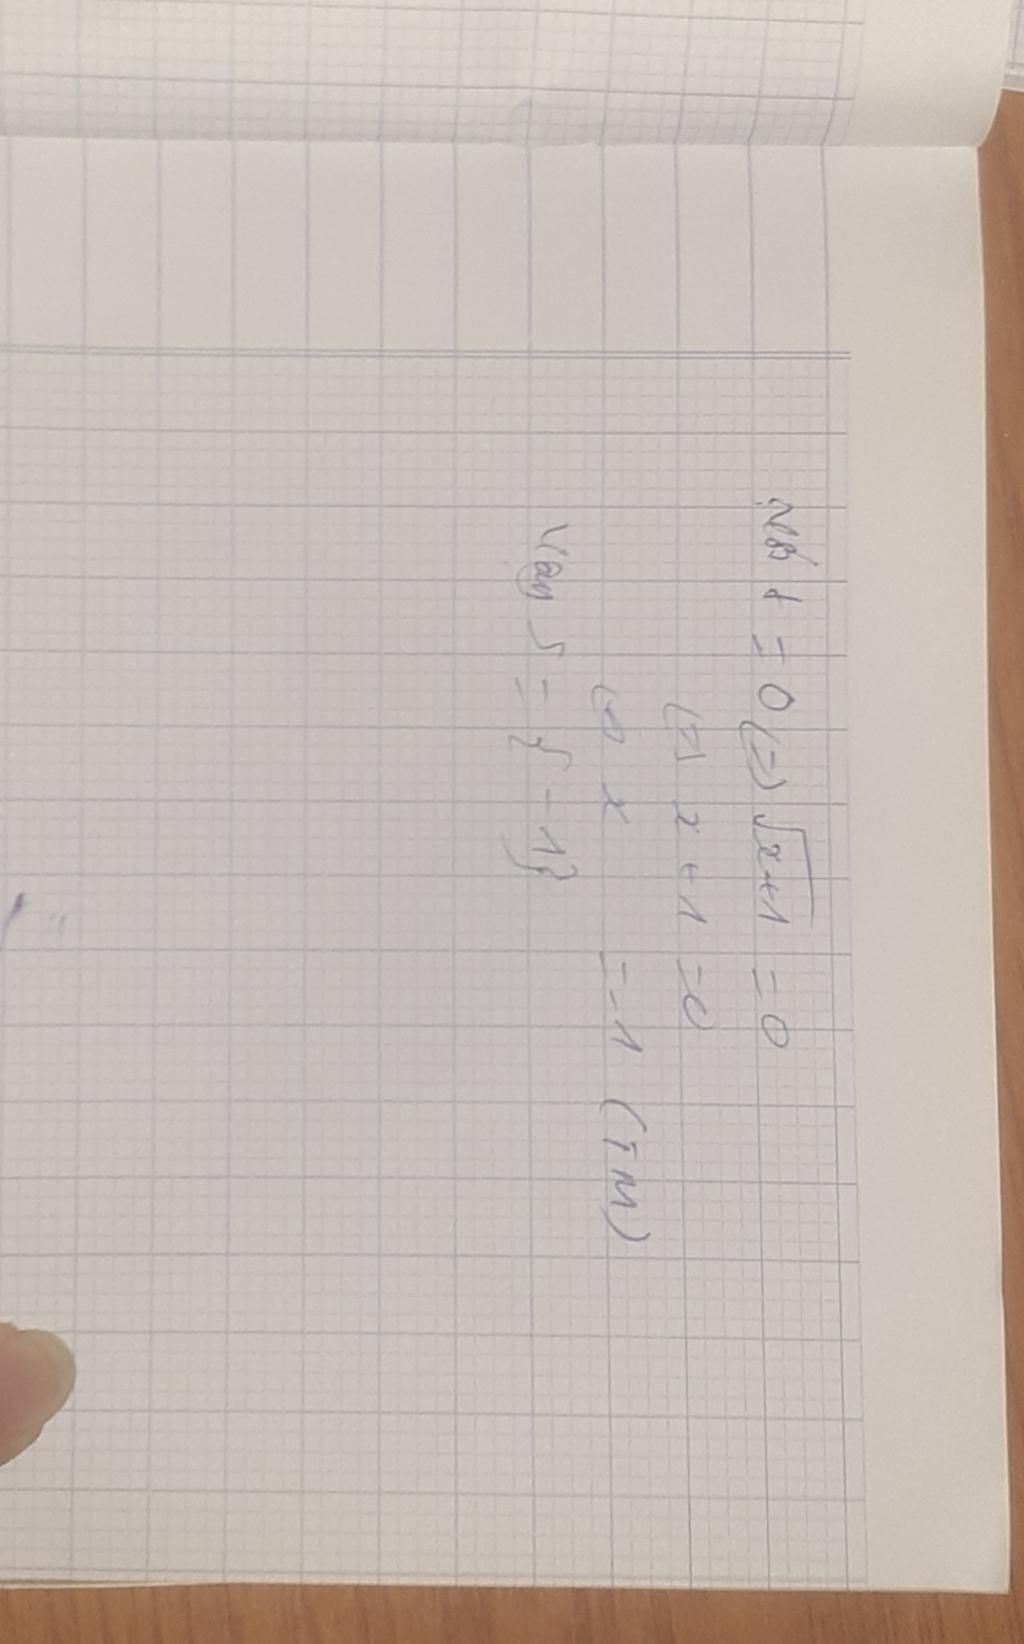 Với t = 0 (=) √x+1 = 0
(=) x + 1 = 0
(=) x = -1 (TM)
Vậy S = { -1}